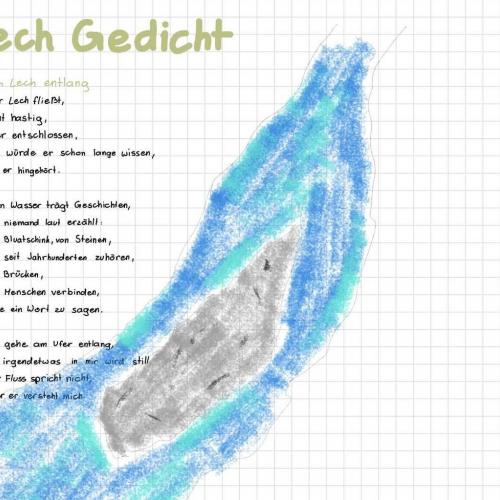 ech Gedicht
n Lech entlang
r Lech fließt,
ht hastig,
er entschlossen,
würde er schon lange wissen,
er hingehört.
n Wasser trägt Geschichten,
niemand laut erzählt:
Bluatschink, von Steinen,
seit Jahrhunderten zuhören,
Brücken,
Menschen verbinden,
e ein Wort zu sagen.
gehe am Ufer entlang,
irgendetwas in mir wird still.
r Fluss spricht nicht,
er er versteht mich.